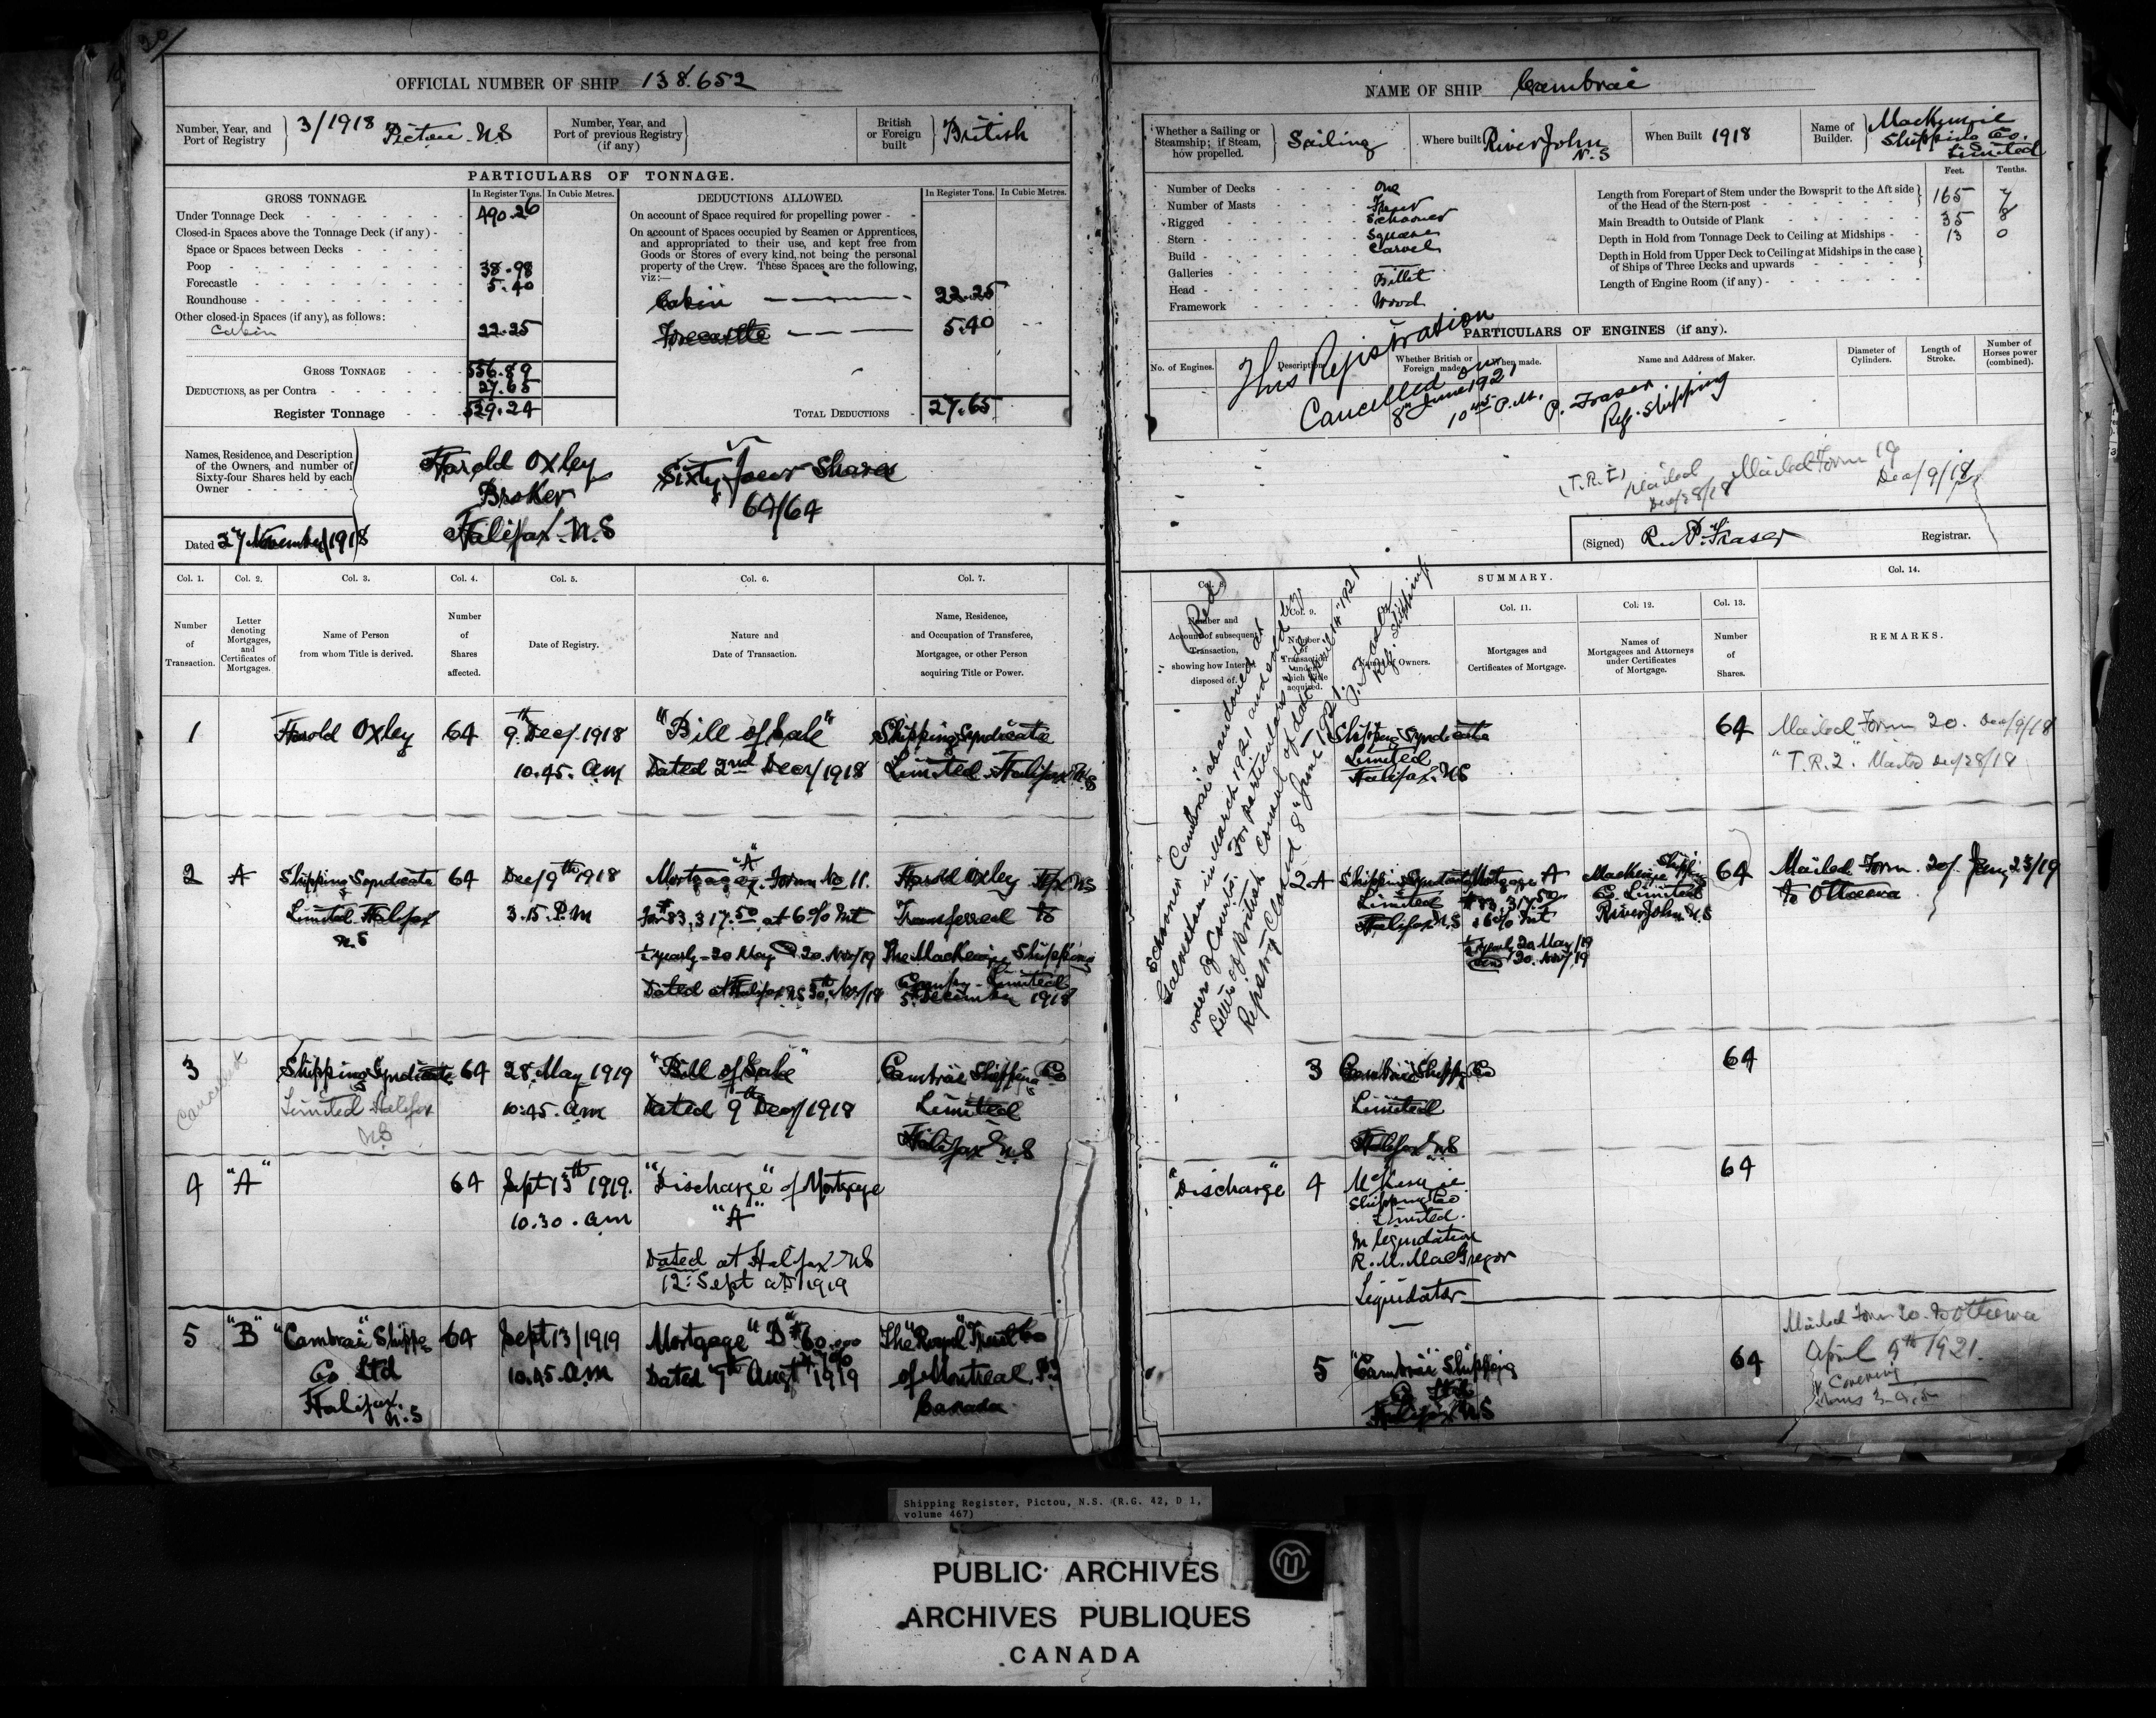 30
OFFICIAL NUMBER OF SHIP 138.652
Number, Year, and Port of Registry } 3/1918 Pictou N.S
Number, Year, and Port of previous Registry (if any) }
British or Foreign built } British
PARTICULARS OF TONNAGE.
GROSS TONNAGE. In Register Tons. In Cubic Metres.
Under Tonnage Deck 490.26
Closed-in Spaces above the Tonnage Deck (if any)
Space or Spaces between Decks
Poop 38.98
Forecastle 5.40
Roundhouse
Other closed-in Spaces (if any), as follows:
Cabin 22.25
GROSS TONNAGE 556.89
DEDUCTIONS, as per Contra 27.65
Register Tonnage 529.24
DEDUCTIONS ALLOWED. In Register Tons. In Cubic Metres.
On account of Space required for propelling power
On account of Spaces occupied by Seamen or Apprentices,
and appropriated to their use, and kept free from
Goods or Stores of every kind, not being the personal
property of the Crew. These Spaces are the following,
viz:—
Cabin 22.25
Forecastle 5.40
TOTAL DEDUCTIONS 27.65
Names, Residence, and Description
of the Owners, and number of
Sixty-four Shares held by each
Owner
Harold Oxley
Broker
Halifax. N.S
Sixty four Shares
64/64
Dated 27 November/1918
Col. 1. Col. 2. Col. 3. Col. 4. Col. 5. Col. 6. Col. 7.
Number of Transaction.
Letter denoting Mortgages, and Certificates of Mortgages.
Name of Person from whom Title is derived.
Number of Shares affected.
Date of Registry.
Nature and Date of Transaction.
Name, Residence, and Occupation of Transferee, Mortgagee, or other Person acquiring Title or Power.
1 Harold Oxley 64 9th Dec/1918 "Bill of Sale" Shipping Syndicate
10.45. am Dated 2nd Decr/1918 Limited Halifax N.S
2 A Shipping Syndicate 64 Dec/9th 1918 Mortgage "A" Form No 11. Harold Oxley Hfx NS
Limited Halifax 3.15. P.m for $83,317.50 at 6% Int Transferred to
N.S ½ yearly - 20 May & 20. Nov/19 The MacKenzie Shipping
Dated at Halifax NS 30th Nov/18 Company Limited
5th December 1918
3 Shipping Syndicate 64 28. May 1919 "Bill of Sale" Cambrai Shipping Co
Cancelled
Limited Halifax 10:45. am Dated 9th Decr/1918 Limited
NS Halifax N.S
4 "A" 64 Sept 13th 1919. "Discharge" of Mortgage
10.30. am "A"
Dated at Halifax NS
12: Sept AD 1919
5 "B" "Cambrai" Shippg 64 Sept 13/1919 Mortgage "B" $60.000 The "Royal" Trust Co
Co Ltd 10.45. am Dated 9th Augt 1919 7% of Montreal P.Q
Halifax. N.S Canada
NAME OF SHIP Cambrai
Whether a Sailing or Steamship; if Steam, how propelled. } Sailing
Where built River John N.S
When Built 1918
Name of Builder. } MacKenzie Shipping Co. Limited
Number of Decks One
Number of Masts Four
Rigged Schooner
Stern Square
Build Carvel
Galleries —
Head Billet
Framework Wood
Feet. Tenths.
Length from Forepart of Stem under the Bowsprit to the Aft side
of the Head of the Stern-post } 165 7
Main Breadth to Outside of Plank 35 8
Depth in Hold from Tonnage Deck to Ceiling at Midships 13 0
Depth in Hold from Upper Deck to Ceiling at Midships in the case
of Ships of Three Decks and upwards }
Length of Engine Room (if any)
PARTICULARS OF ENGINES (if any).
No. of Engines. Description. Whether British or Foreign made. When made. Name and Address of Maker. Diameter of Cylinders. Length of Stroke. Number of Horses power (combined).
This Registration
Cancelled on
8th June 1921
10.45 P.M. P. Fraser.
Reg. Shipping
(T.R.I) Mailed Dec/28/18 Mailed Form 19 Dec/9/18
(Signed) R. P. Fraser Registrar.
SUMMARY.
Col. 8. Col. 9. Col. 11. Col. 12. Col. 13. Col. 14.
Number and Account of subsequent Transaction, showing how Interest disposed of.
Number of Transaction under which Title acquired.
Names of Owners.
Mortgages and Certificates of Mortgage.
Names of Mortgagees and Attorneys under Certificates of Mortgage.
Number of Shares.
REMARKS.
(Red)
Schooner "Cambrai" abandoned at
Galveston in March 1921 and sold by
order of Court. For particulars see
Letter of British Consul of date April 14" 1921
Registry Closed 8" June 1921. P. Fraser
Reg. Shipping
Shipping Syndicate 64 Mailed Form 20. Dec/9/18
Limited "T.R.2". Mailed Dec/28/18
Halifax. N.S
2 A Shipping Syndicate Mortgage A MacKenzie Shippg 64 Mailed Form 20/ Jany 23/19
Limited $83,317.50 Co. Limited to Ottawa
Halifax N.S 6% Int River John N.S
½ yearly 20 May/19
and 20. Nov/19
3 Cambrai Shippg Co 64
Limited
Halifax NS
"Discharge" 4 McKenzie 64
Shipping Co
Limited.
In liquidation
R. M. MacGregor
Liquidator
Mailed Form 20. to Ottawa
April 9th 1921.
Covering
5 "Cambrai" Shipping 64
Co Ltd
Halifax NS
Shipping Register, Pictou, N.S. (R.G. 42, D 1,
volume 467)
PUBLIC ARCHIVES
ARCHIVES PUBLIQUES
CANADA